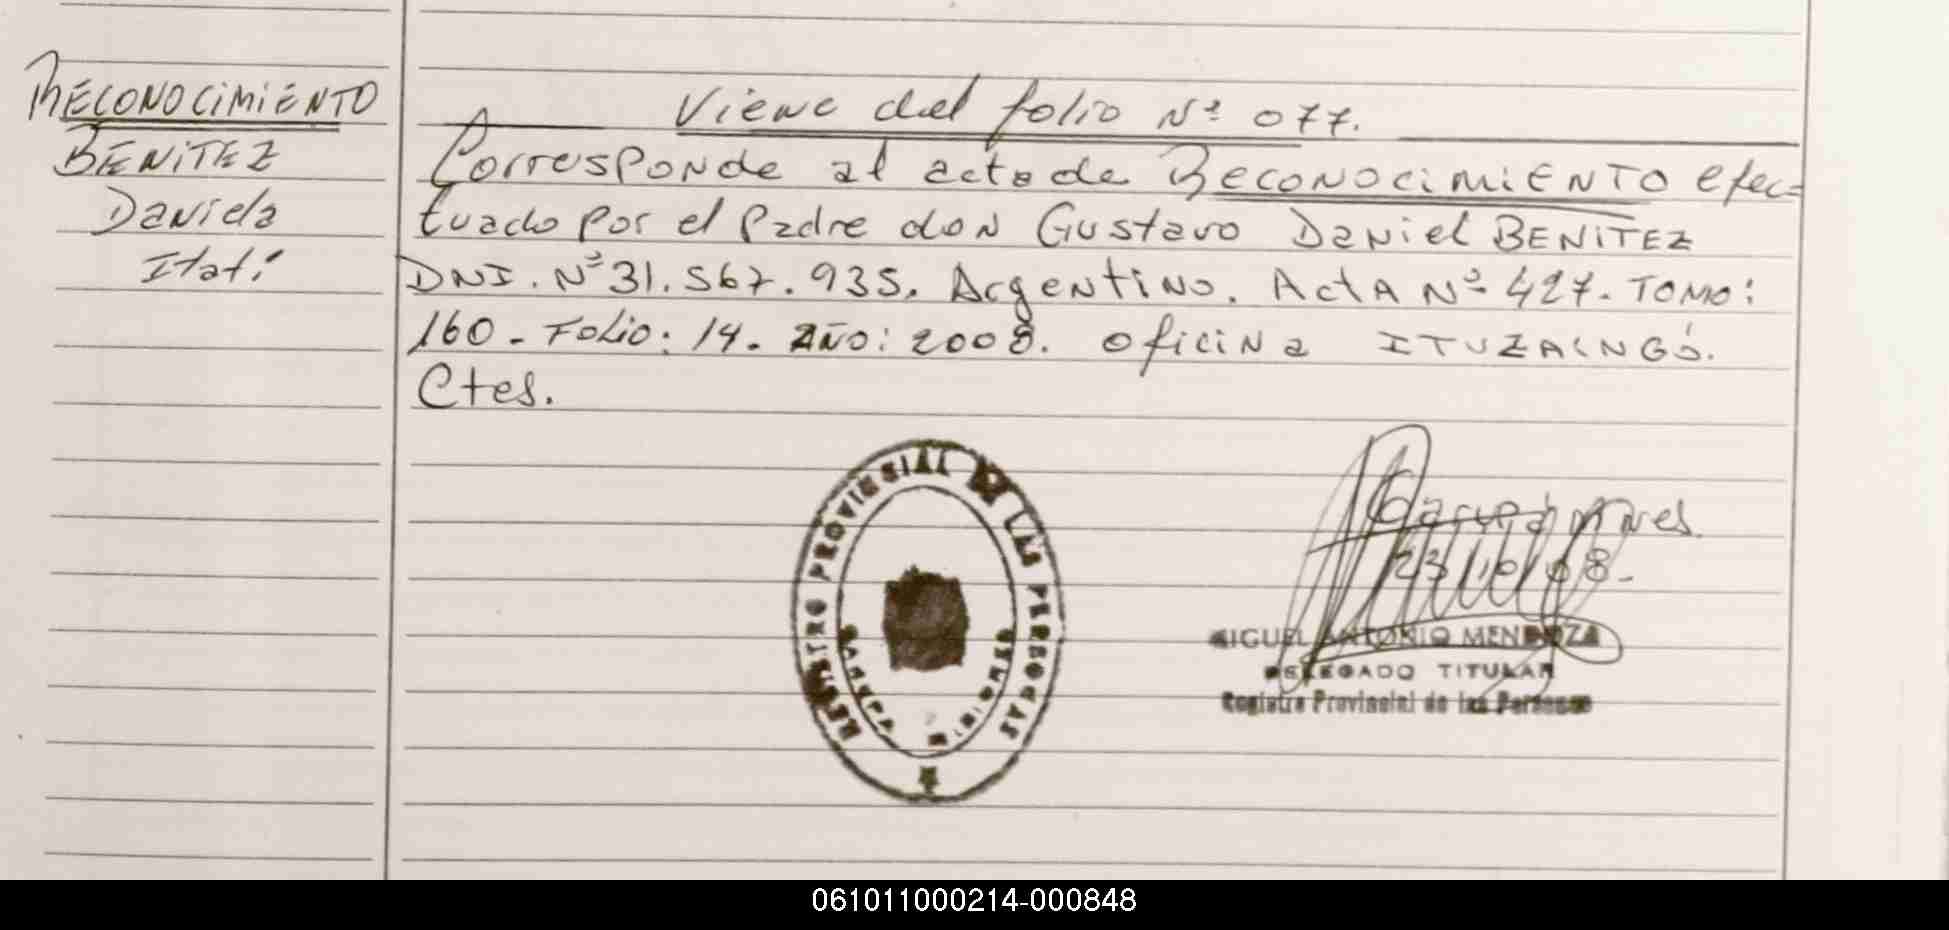 RECONOCIMIENTO
BENITEZ
Daniela
Itatí
Viene del folio Nº 077.
Corresponde al acto de RECONOCIMIENTO efec=
tuado por el Padre don Gustavo Daniel BENITEZ
DNI. Nº 31.567.935. Argentino. Acta Nº 427. TOMO:
160 - Folio: 14. AÑO: 2008. Oficina ITUZAINGÓ.
Ctes.
REGISTRO PROVINCIAL DE LAS PERSONAS
23/10/08.
MIGUEL ANTONIO MENDOZA
DELEGADO TITULAR
Registro Provincial de las Personas
061011000214-000848